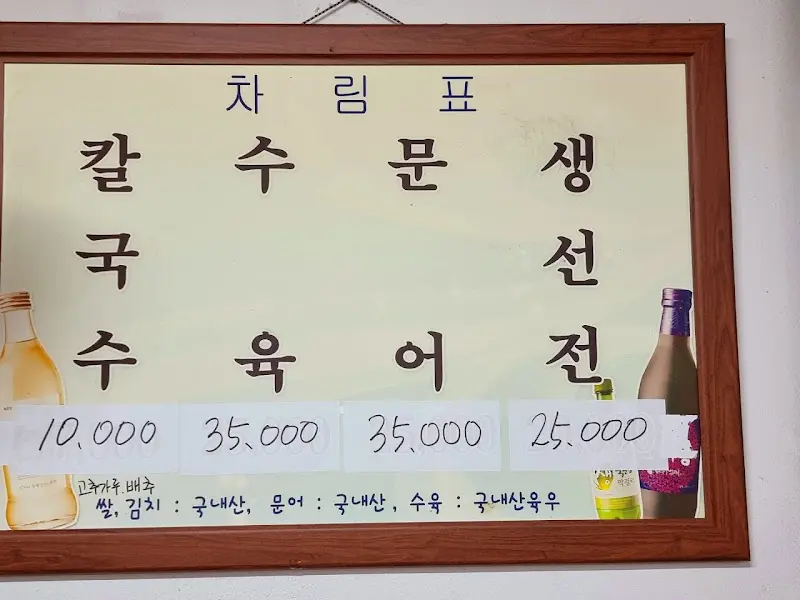 차림표
칼국수
수육
문어
생선전
10.000
35.000
35.000
25.000
고추가루.배추
쌀, 김치 : 국내산, 문어 : 국내산, 수육 : 국내산육우